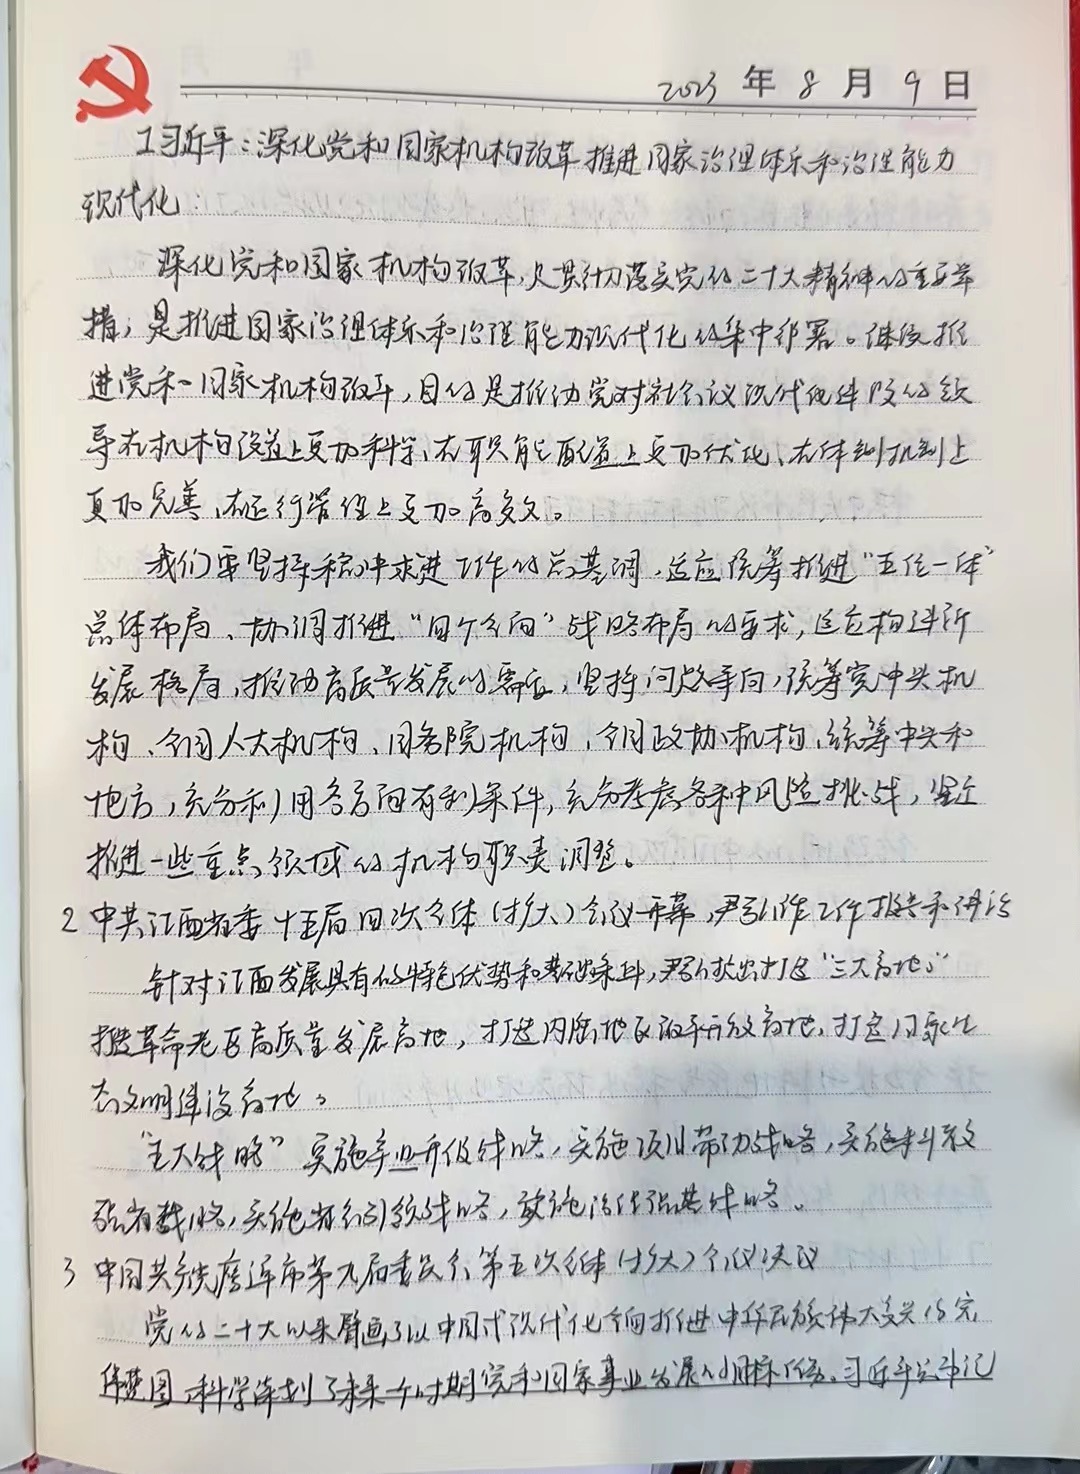 2023年8月9日
1习近平：深化党和国家机构改革 推进国家治理体系和治理能力
现代化
深化党和国家机构改革，是贯彻落实党的二十大精神的重要举
措，是推进国家治理体系和治理能力现代化的集中部署。继续推
进党和国家机构改革，目的是推动党对社会主义现代化建设的领
导在机构设置上更加科学、在职能配置上更加优化、在体制机制上
更加完善、在运行管理上更加高效。
我们要坚持稳中求进工作的总基调，适应统筹推进“五位一体”
总体布局、协调推进“四个全面”战略布局的要求，适应构建新
发展格局、推动高质量发展的需要，坚持问题导向，统筹党中央机
构、全国人大机构、国务院机构、全国政协机构，统筹中央和
地方，充分利用各方面有利条件，充分考虑各种风险挑战，坚定
推进一些重点领域的机构职责调整。
2 中共江西省委十五届四次全体（扩大）会议开幕，尹弘作工作报告和讲话
针对江西发展具有的特色优势和基础条件，尹弘提出打造“三大高地”
打造革命老区高质量发展高地，打造内陆地区改革开放高地，打造国家生
态文明建设高地。
“五大战略”实施产业升级战略，实施项目带动战略，实施科教
强省战略，实施省会引领战略，实施治理强基战略。
3 中国共产党 市第九届委员会第五次全体（扩大）会议决议
党的二十大以来擘画了以中国式现代化全面推进中华民族伟大复兴的宏
伟蓝图，科学谋划了未来一个时期党和国家事业发展的目标任务。习近平总书记